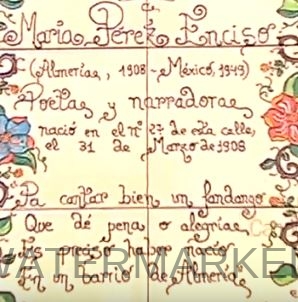 María Pérez Enciso
(Almería, 1908 - México, 1949)
Poeta y narradora
nació en el nº 27 de esta calle,
el 31 de Marzo de 1908
Pa cantar bien un fandango
Que dé pena o alegría
Es preciso haber nacío
En un barrio de Almería
WATERMARKED